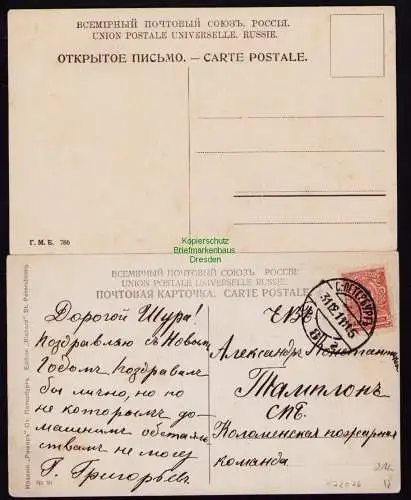 ВСЕМIРНЫЙ ПОЧТОВЫЙ СОЮЗЪ. РОССIЯ.
UNION POSTALE UNIVERSELLE. RUSSIE.
ОТКРЫТОЕ ПИСЬМО. — CARTE POSTALE.
Г. М. Б. 786
Kopierschutz
Briefmarkenhaus
Dresden
ВСЕМIРНЫЙ ПОЧТОВЫЙ СОЮЗЪ. РОССIЯ
UNION POSTALE UNIVERSELLE. RUSSIE
ПОЧТОВАЯ КАРТОЧКА. CARTE POSTALE
С.ПЕТЕРБУРГЪ
Дорогой Шура!
Поздравляю съ Новымъ
Годомъ. Поздравилъ
бы лично, но по
некоторымъ до-
машнимъ обстоятель
ствамъ не могу
Г. Григорьевъ
ЕВБ
Александръ Константин
Тамплонъ
СПБ.
Коломенская пожарная
команда